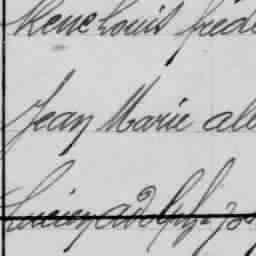 René Louis fréde
Jean Marie ale
Lucien adolphe jos